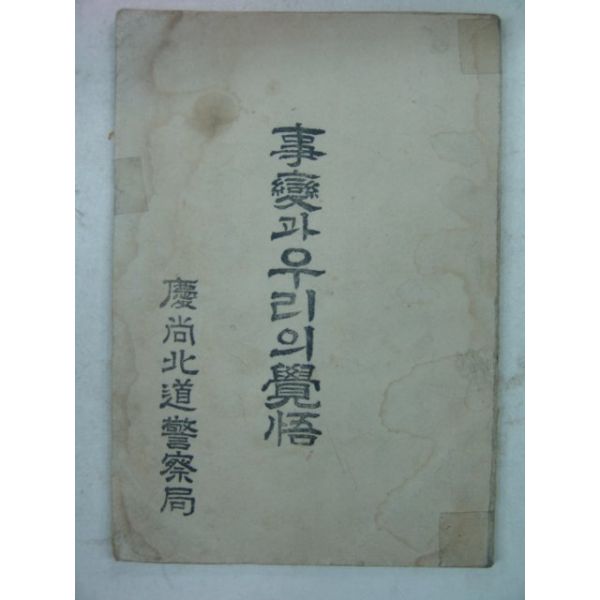 事變과우리의覺悟
慶尙北道警察局